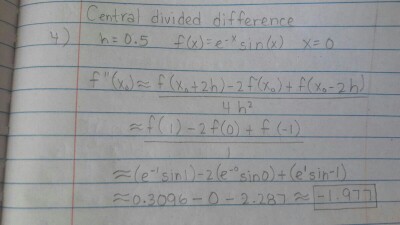 Central divided difference
4) h=0.5 f(x)=e^-x sin(x) x=0
f"(x₀)≈ f(x₀+2h)-2f(x₀)+f(x₀-2h)
4h²
≈ f(1)-2f(0)+f(-1)
1
≈(e^-1 sin1)-2(e^-0 sin0)+(e^1 sin-1)
≈0.3096-0-2.287≈ -1.977